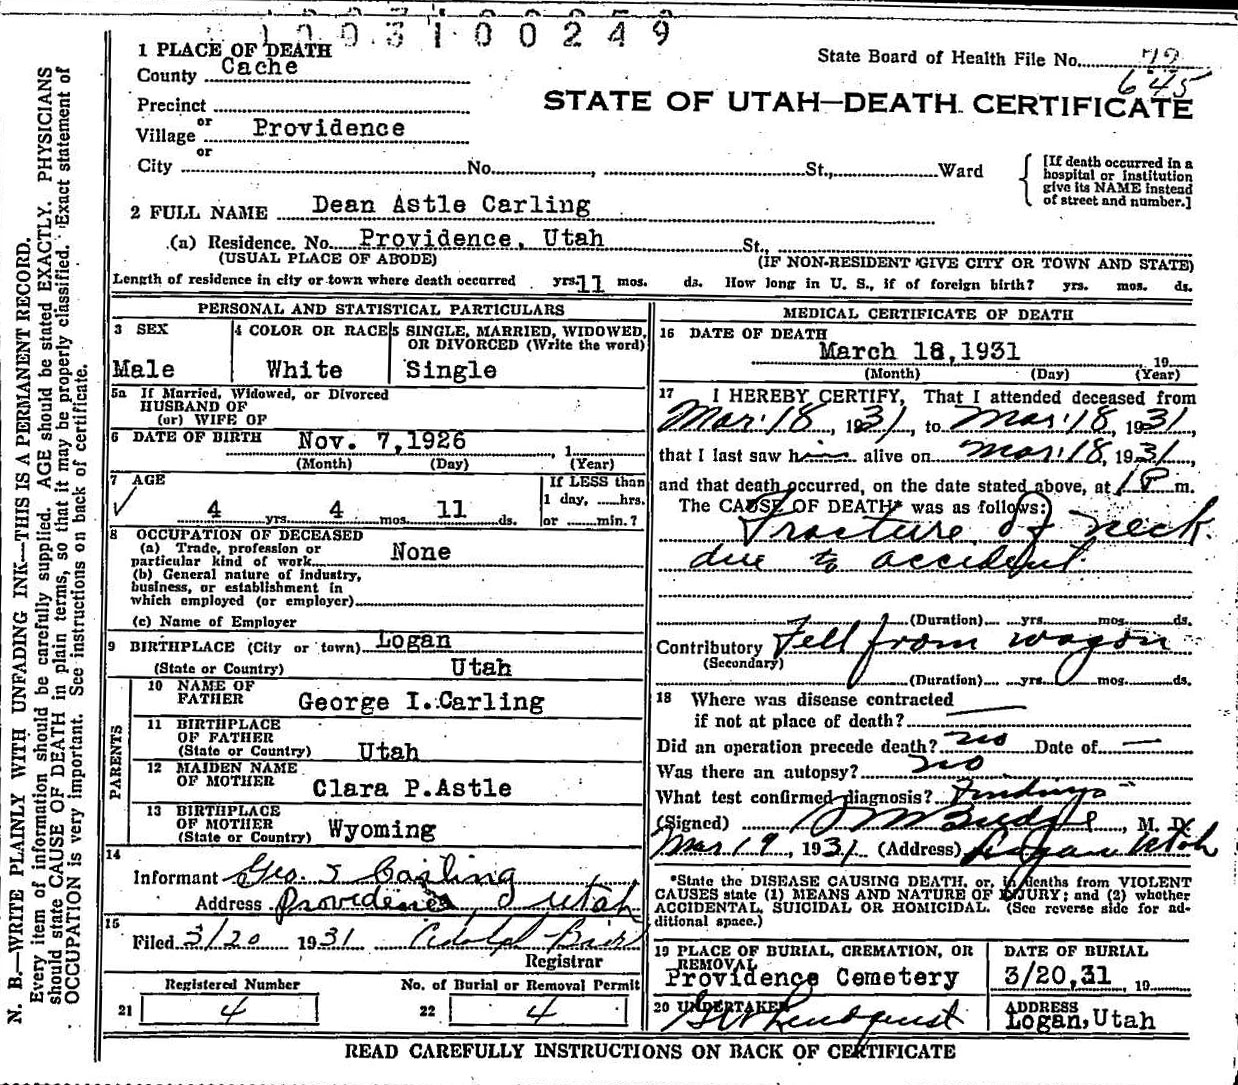 1003100249
1 PLACE OF DEATH
County Cache
State Board of Health File No. 72
645
STATE OF UTAH—DEATH CERTIFICATE
Precinct
or
Village Providence
or
City No. , St., Ward
[If death occurred in a
hospital or institution
give its NAME instead
of street and number.]
2 FULL NAME Dean Astle Carling
(a) Residence. No. Providence, Utah St.,
(USUAL PLACE OF ABODE) (IF NON-RESIDENT GIVE CITY OR TOWN AND STATE)
Length of residence in city or town where death occurred yrs. 11 mos. ds. How long in U. S., if of foreign birth? yrs. mos. ds.
PERSONAL AND STATISTICAL PARTICULARS
3 SEX 4 COLOR OR RACE 5 SINGLE, MARRIED, WIDOWED,
OR DIVORCED (Write the word)
Male White Single
5a If Married, Widowed, or Divorced
HUSBAND OF
(or) WIFE OF
6 DATE OF BIRTH Nov. 7,1926 , 1
(Month) (Day) (Year)
7 AGE If LESS than
1 day, hrs.
4 yrs. 4 mos. 11 ds. or min.?
8 OCCUPATION OF DECEASED
(a) Trade, profession or
particular kind of work None
(b) General nature of industry,
business, or establishment in
which employed (or employer)
(c) Name of Employer
9 BIRTHPLACE (City or town) Logan
(State or Country) Utah
PARENTS
10 NAME OF
FATHER George I. Carling
11 BIRTHPLACE
OF FATHER
(State or Country) Utah
12 MAIDEN NAME
OF MOTHER Clara P.Astle
13 BIRTHPLACE
OF MOTHER
(State or Country) Wyoming
14
Informant Geo. I Carling
Address Providence Utah
15
Filed 3/20 1931
Registrar
Registered Number No. of Burial or Removal Permit
21 4 22 4
MEDICAL CERTIFICATE OF DEATH
16 DATE OF DEATH
March 18,1931 19
(Month) (Day) (Year)
17 I HEREBY CERTIFY, That I attended deceased from
Mar. 18, 1931, to Mar. 18, 1931,
that I last saw him alive on Mar. 18, 1931,
and that death occurred, on the date stated above, at 1 P m.
The CAUSE OF DEATH* was as follows:
Fracture of neck
due to accident.
(Duration) yrs. mos. ds.
Contributory Fell from wagon
(Secondary)
(Duration) yrs. mos. ds.
18 Where was disease contracted
if not at place of death? —
Did an operation precede death? no Date of —
Was there an autopsy? no
What test confirmed diagnosis? Findings
(Signed) O M Budge, M. D.
Mar 19, 1931 (Address) Logan Utah
*State the DISEASE CAUSING DEATH, or, in deaths from VIOLENT
CAUSES state (1) MEANS AND NATURE OF INJURY; and (2) whether
ACCIDENTAL, SUICIDAL OR HOMICIDAL. (See reverse side for ad-
ditional space.)
19 PLACE OF BURIAL, CREMATION, OR
REMOVAL
Providence Cemetery
DATE OF BURIAL
3/20,31 19
20 UNDERTAKER
Lundquist
ADDRESS
Logan,Utah
READ CAREFULLY INSTRUCTIONS ON BACK OF CERTIFICATE
N. B.—WRITE PLAINLY WITH UNFADING INK—THIS IS A PERMANENT RECORD.
Every item of information should be carefully supplied. AGE should be stated EXACTLY. PHYSICIANS
should state CAUSE OF DEATH in plain terms, so that it may be properly classified. Exact statement of
OCCUPATION is very important. See instructions on back of certificate.